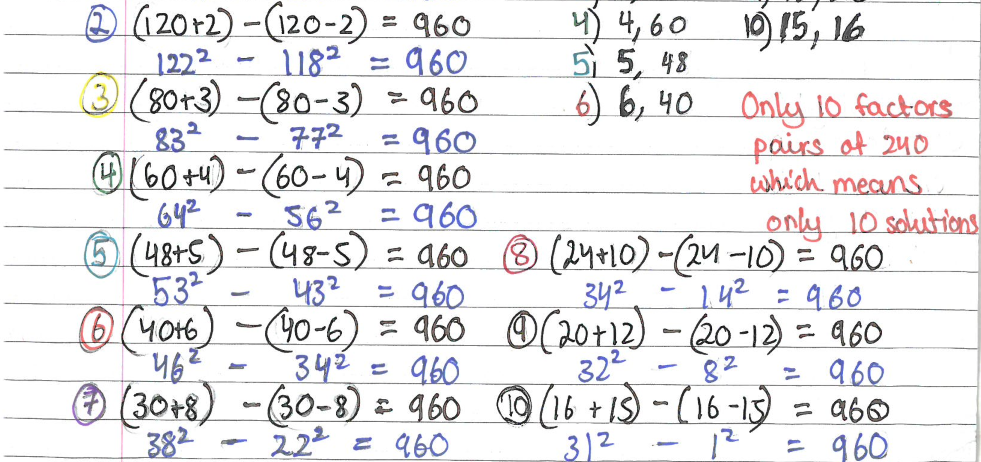 ② (120+2) - (120-2) = 960
122² - 118² = 960
③ (80+3) - (80-3) = 960
83² - 77² = 960
④ (60+4) - (60-4) = 960
64² - 56² = 960
⑤ (48+5) - (48-5) = 960
53² - 43² = 960
⑥ (40+6) - (40-6) = 960
46² - 34² = 960
⑦ (30+8) - (30-8) = 960
38² - 22² = 960
4) 4, 60
5) 5, 48
6) 6, 40
10) 15, 16
Only 10 factors
pairs of 240
which means
only 10 solutions
⑧ (24+10) - (24-10) = 960
34² - 14² = 960
⑨ (20+12) - (20-12) = 960
32² - 8² = 960
⑩ (16+15) - (16-15) = 960
31² - 1² = 960